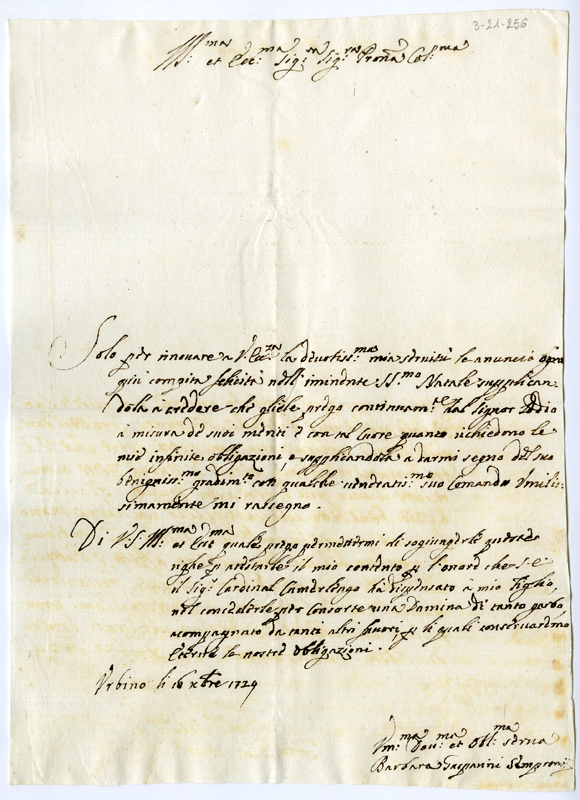 3-21-256
Ill:ma et Ecc:ma Sig:ra Sig:ra Prona Col:ma
Solo per rinovare a V. Ecc:za la devotiss:ma mia servitù le anuncio ogni
più compita felicità nell'iminente SS:mo Natale supplican-
dola a credere che gliele prego continuam:te dal Signor Iddio
à misura de suoi meriti è con tal Cuore quanto richiedono le
mie infinite obligazioni, e supplicandola a darmi segno del suo
benigniss:mo gradim:to con qualche veneratis:mo suo Comando umilis-
simamente mi rassegno.
Di V.S. Ill:ma et Ecc:ma quale prego permettermi di sogiungerle queste
righe p atestarle il mio contento p l'onore che S. E.
il Sig:r Cardinal Camerlengo hà dispensato à mio Figlio,
nel concederle per Consorte una Damina di tanto garbo,
acompagnato da tanti altri favori, p li quali conservaremo
le nostre obligazioni.
Urbino li 16 xbre 1729
Um:ma Dev:ma et Obl:ma Serva
Barbara Gasparini Sempronij